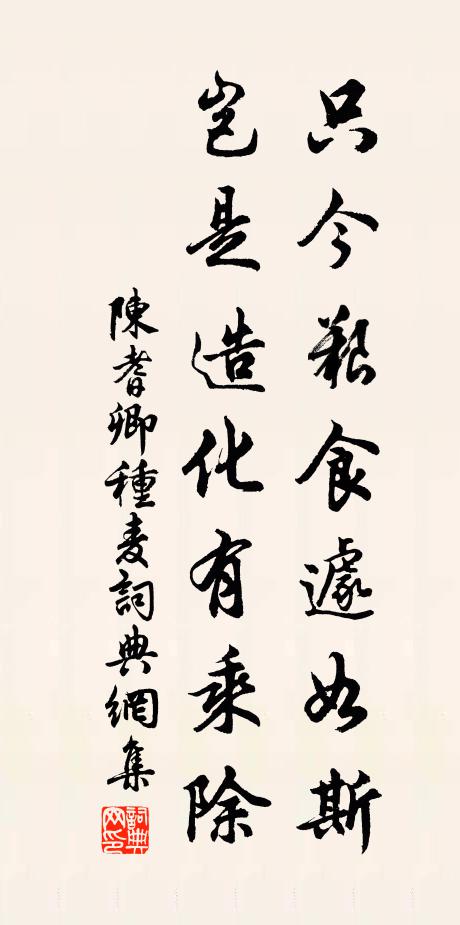 只今艱食遽如斯
岂是造化有乘除
陳耆卿種麦詞典網集
詞典
网印